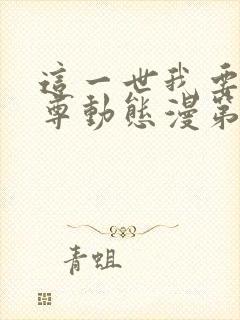 這一世我要
尊動態漫第
青蛆